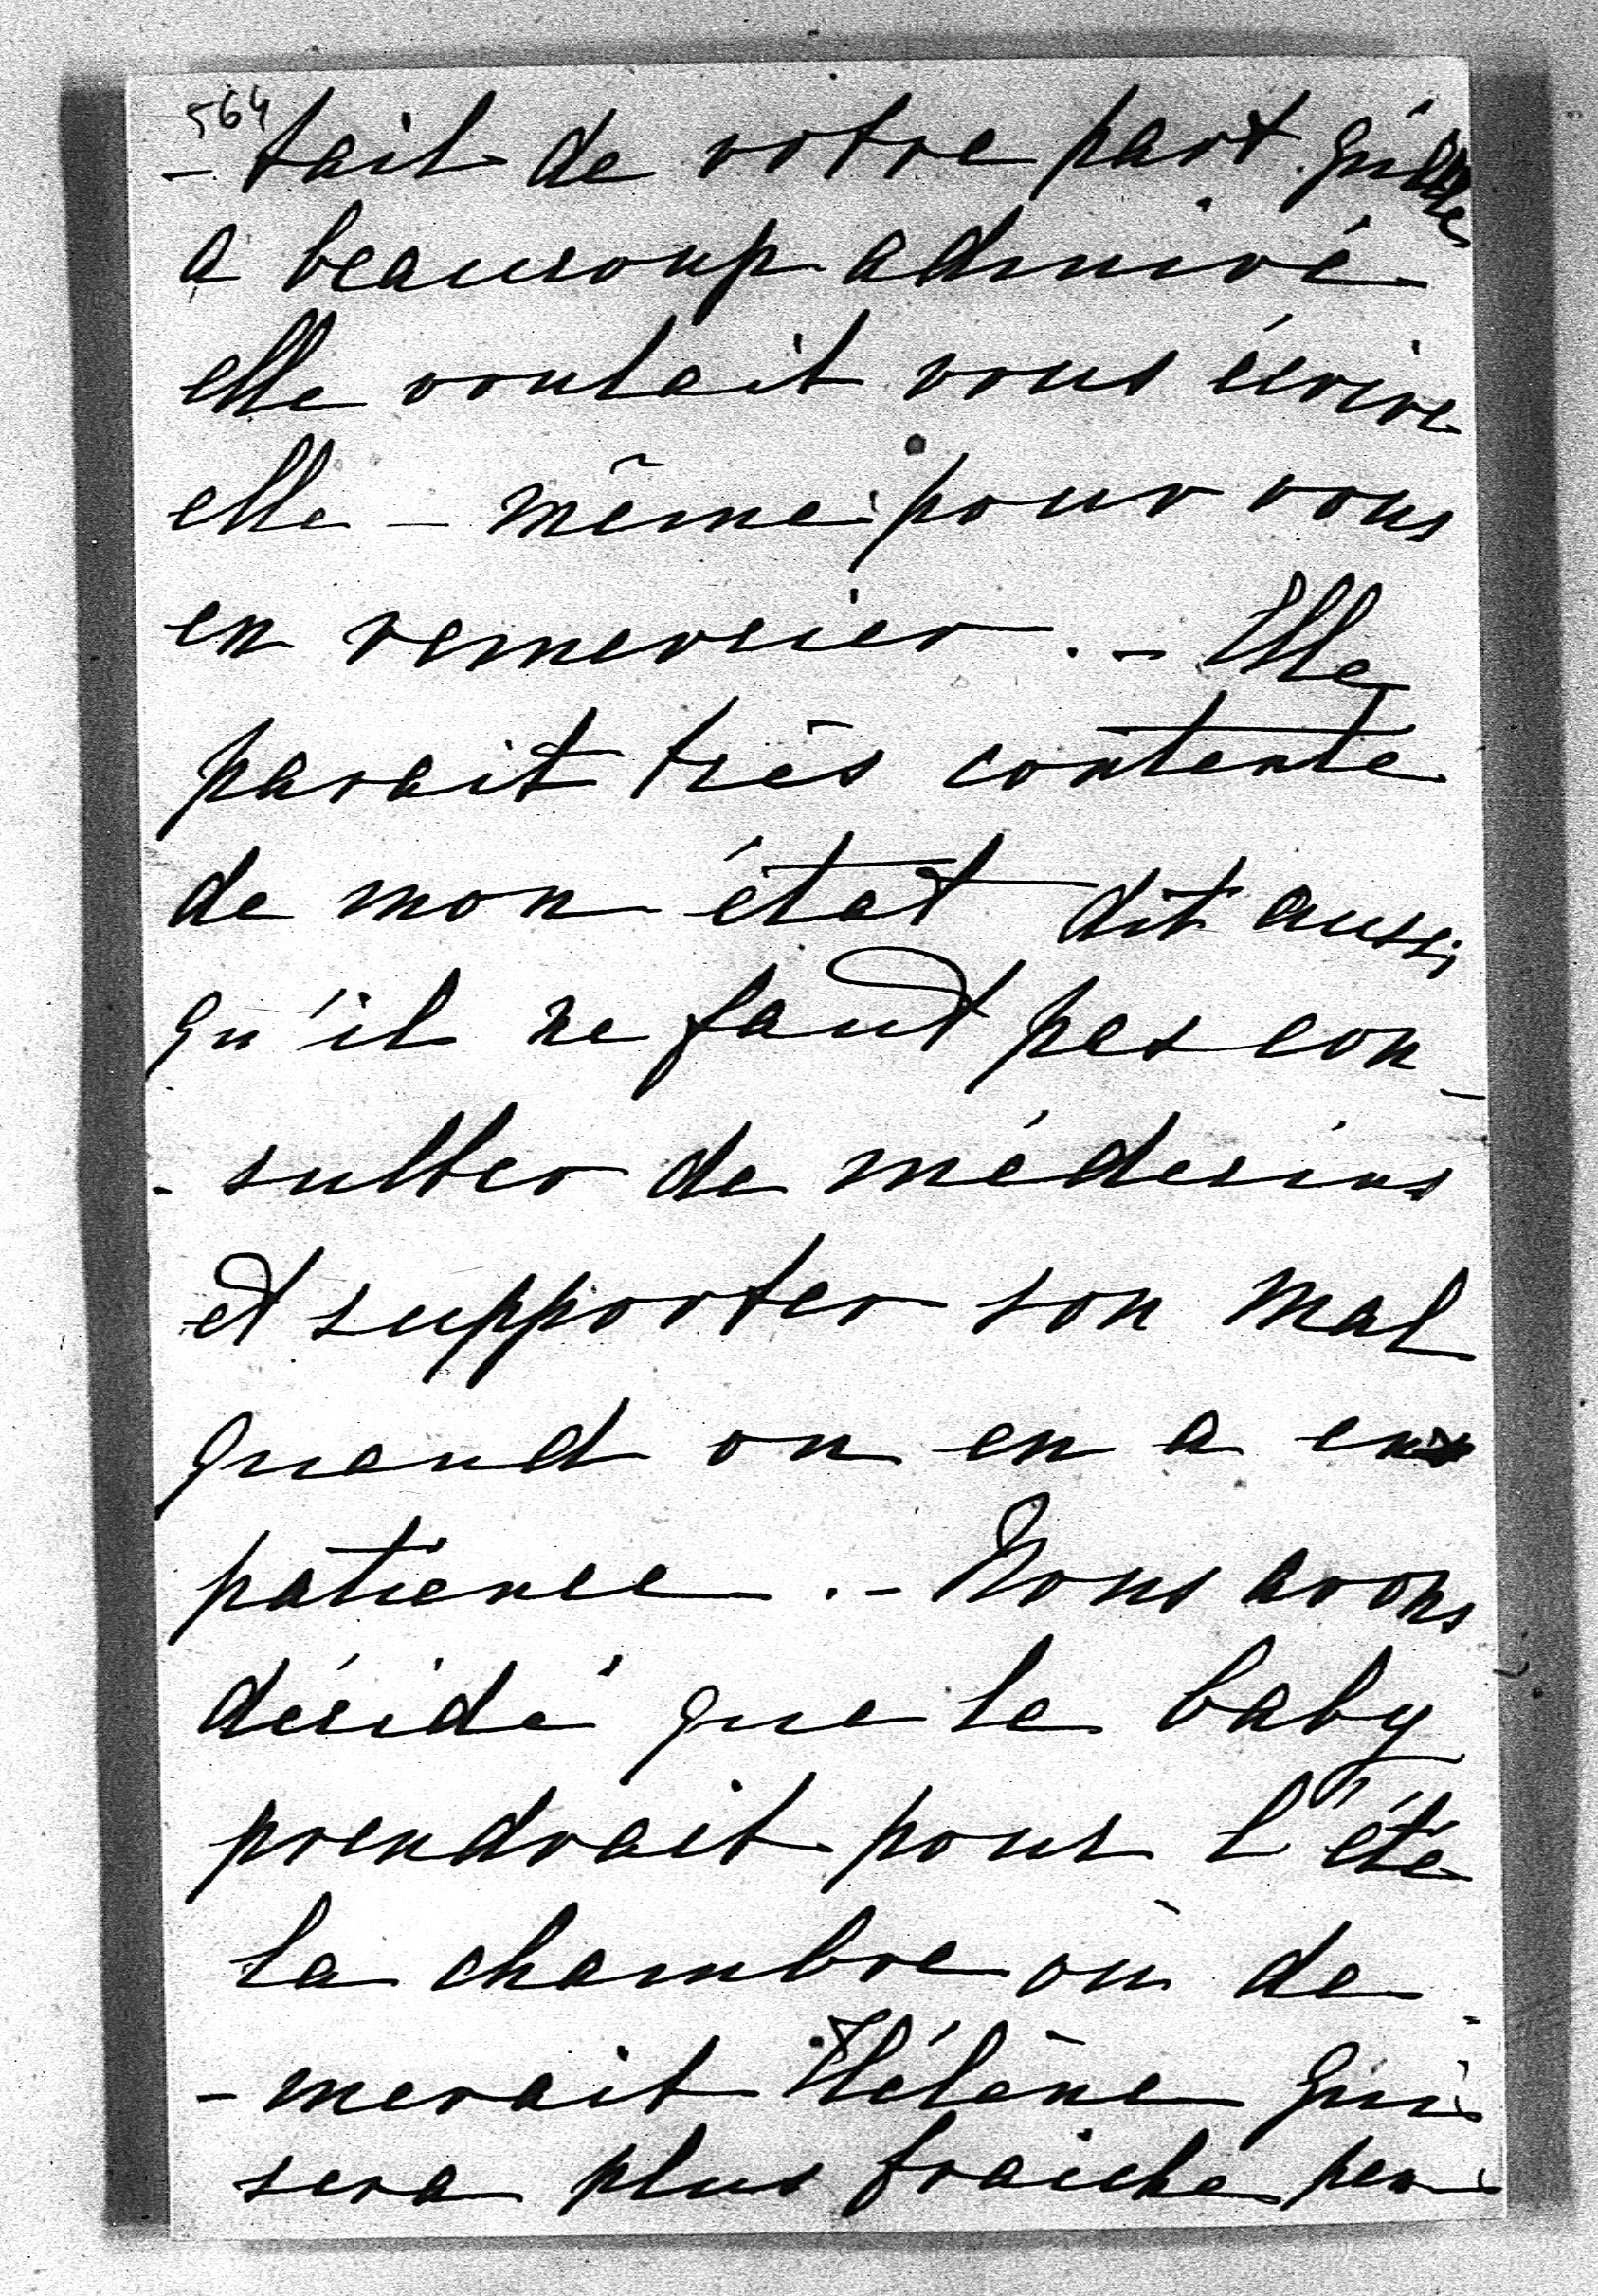 564
- tait de votre part qu'elle
a beaucoup admiré
elle voulait vous écrire
elle - même pour vous
en remercier . - Elle
parait très contente
de mon état dit aussi
qu'il ne faut pas con -
- sulter de médecins
et supporter son mal
quand on en a en
patience . - Nous avons
décidé que le baby
prendrait pour l'été
la chambre où de -
- merait Hélène qui
sera plus fraiche pen -